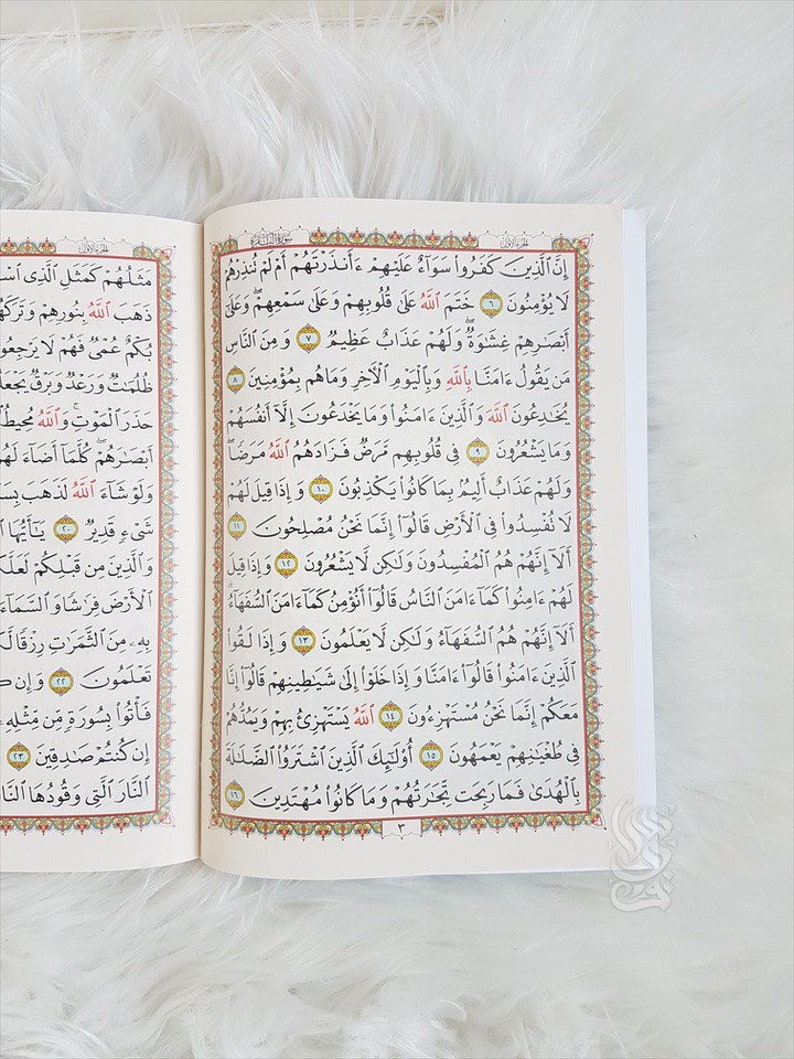 الجزء الأول
سورة البقرة
إِنَّ ٱلَّذِينَ كَفَرُوا۟ سَوَآءٌ عَلَيْهِمْ ءَأَنذَرْتَهُمْ أَمْ لَمْ تُنذِرْهُمْ
لَا يُؤْمِنُونَ ٦ خَتَمَ ٱللَّهُ عَلَىٰ قُلُوبِهِمْ وَعَلَىٰ سَمْعِهِمْ ۖ وَعَلَىٰٓ
أَبْصَٰرِهِمْ غِشَٰوَةٌ ۖ وَلَهُمْ عَذَابٌ عَظِيمٌ ٧ وَمِنَ ٱلنَّاسِ
مَن يَقُولُ ءَامَنَّا بِٱللَّهِ وَبِٱلْيَوْمِ ٱلْأَخِرِ وَمَا هُم بِمُؤْمِنِينَ ٨
يُخَٰدِعُونَ ٱللَّهَ وَٱلَّذِينَ ءَامَنُوا۟ وَمَا يَخْدَعُونَ إِلَّآ أَنفُسَهُمْ
وَمَا يَشْعُرُونَ ٩ فِى قُلُوبِهِم مَّرَضٌ فَزَادَهُمُ ٱللَّهُ مَرَضًا ۖ
وَلَهُمْ عَذَابٌ أَلِيمٌۢ بِمَا كَانُوا۟ يَكْذِبُونَ ١٠ وَإِذَا قِيلَ لَهُمْ
لَا تُفْسِدُوا۟ فِى ٱلْأَرْضِ قَالُوٓا۟ إِنَّمَا نَحْنُ مُصْلِحُونَ ١١
أَلَآ إِنَّهُمْ هُمُ ٱلْمُفْسِدُونَ وَلَٰكِن لَّا يَشْعُرُونَ ١٢ وَإِذَا قِيلَ
لَهُمْ ءَامِنُوا۟ كَمَآ ءَامَنَ ٱلنَّاسُ قَالُوٓا۟ أَنُؤْمِنُ كَمَآ ءَامَنَ ٱلسُّفَهَآءُ ۗ
أَلَآ إِنَّهُمْ هُمُ ٱلسُّفَهَآءُ وَلَٰكِن لَّا يَعْلَمُونَ ١٣ وَإِذَا لَقُوا۟
ٱلَّذِينَ ءَامَنُوا۟ قَالُوٓا۟ ءَامَنَّا وَإِذَا خَلَوْا۟ إِلَىٰ شَيَٰطِينِهِمْ قَالُوٓا۟ إِنَّا
مَعَكُمْ إِنَّمَا نَحْنُ مُسْتَهْزِءُونَ ١٤ ٱللَّهُ يَسْتَهْزِئُ بِهِمْ وَيَمُدُّهُمْ
فِى طُغْيَٰنِهِمْ يَعْمَهُونَ ١٥ أُو۟لَٰٓئِكَ ٱلَّذِينَ ٱشْتَرَوُا۟ ٱلضَّلَٰلَةَ
بِٱلْهُدَىٰ فَمَا رَبِحَت تِّجَٰرَتُهُمْ وَمَا كَانُوا۟ مُهْتَدِينَ ١٦
٣
الجزء الأول
مَثَلُهُمْ كَمَثَلِ ٱلَّذِى
ذَهَبَ ٱللَّهُ بِنُورِهِمْ وَتَرَكَهُمْ
بُكْمٌ عُمْىٌ فَهُمْ لَا يَرْجِعُونَ
ظُلُمَٰتٌ وَرَعْدٌ وَبَرْقٌ يَجْعَلُ
حَذَرَ ٱلْمَوْتِ ۚ وَٱللَّهُ مُحِيطٌۢ
أَبْصَٰرَهُمْ ۖ كُلَّمَآ أَضَآءَ لَهُم
وَلَوْ شَآءَ ٱللَّهُ لَذَهَبَ
شَىْءٍ قَدِيرٌ ٢٠ يَٰٓأَيُّهَا
وَٱلَّذِينَ مِن قَبْلِكُمْ
ٱلْأَرْضَ فِرَٰشًا وَٱلسَّمَآءَ
بِهِۦ مِنَ ٱلثَّمَرَٰتِ رِزْقًا
تَعْلَمُونَ ٢٢ وَإِن
فَأْتُوا۟ بِسُورَةٍ مِّن مِّثْلِهِۦ
إِن كُنتُمْ صَٰدِقِينَ ٢٣
ٱلنَّارَ ٱلَّتِى وَقُودُهَا